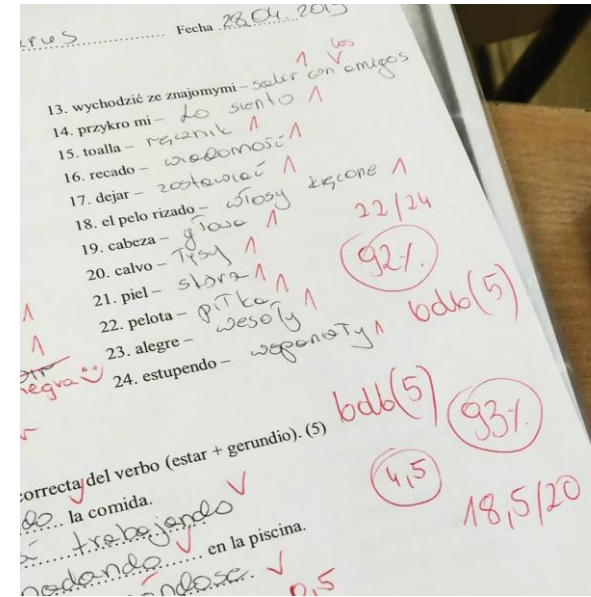 Fecha 28.04. 2015
13. wychodzić ze znajomymi – salir con los amigos
14. przykro mi – Lo siento
15. toalla – ręcznik
16. recado – wiadomość
17. dejar – zostawiać
18. el pelo rizado – włosy kręcone
19. cabeza – głowa
20. calvo – łysy
21. piel – skóra
22. pelota – piłka
23. alegre – wesoły
24. estupendo – wspaniały
22/24
92%
bdb(5)
negra
bdb(5)
93%
correcta del verbo (estar + gerundio). (5)
4,5
18,5/20
la comida.
trabajando
en la piscina.
0,5